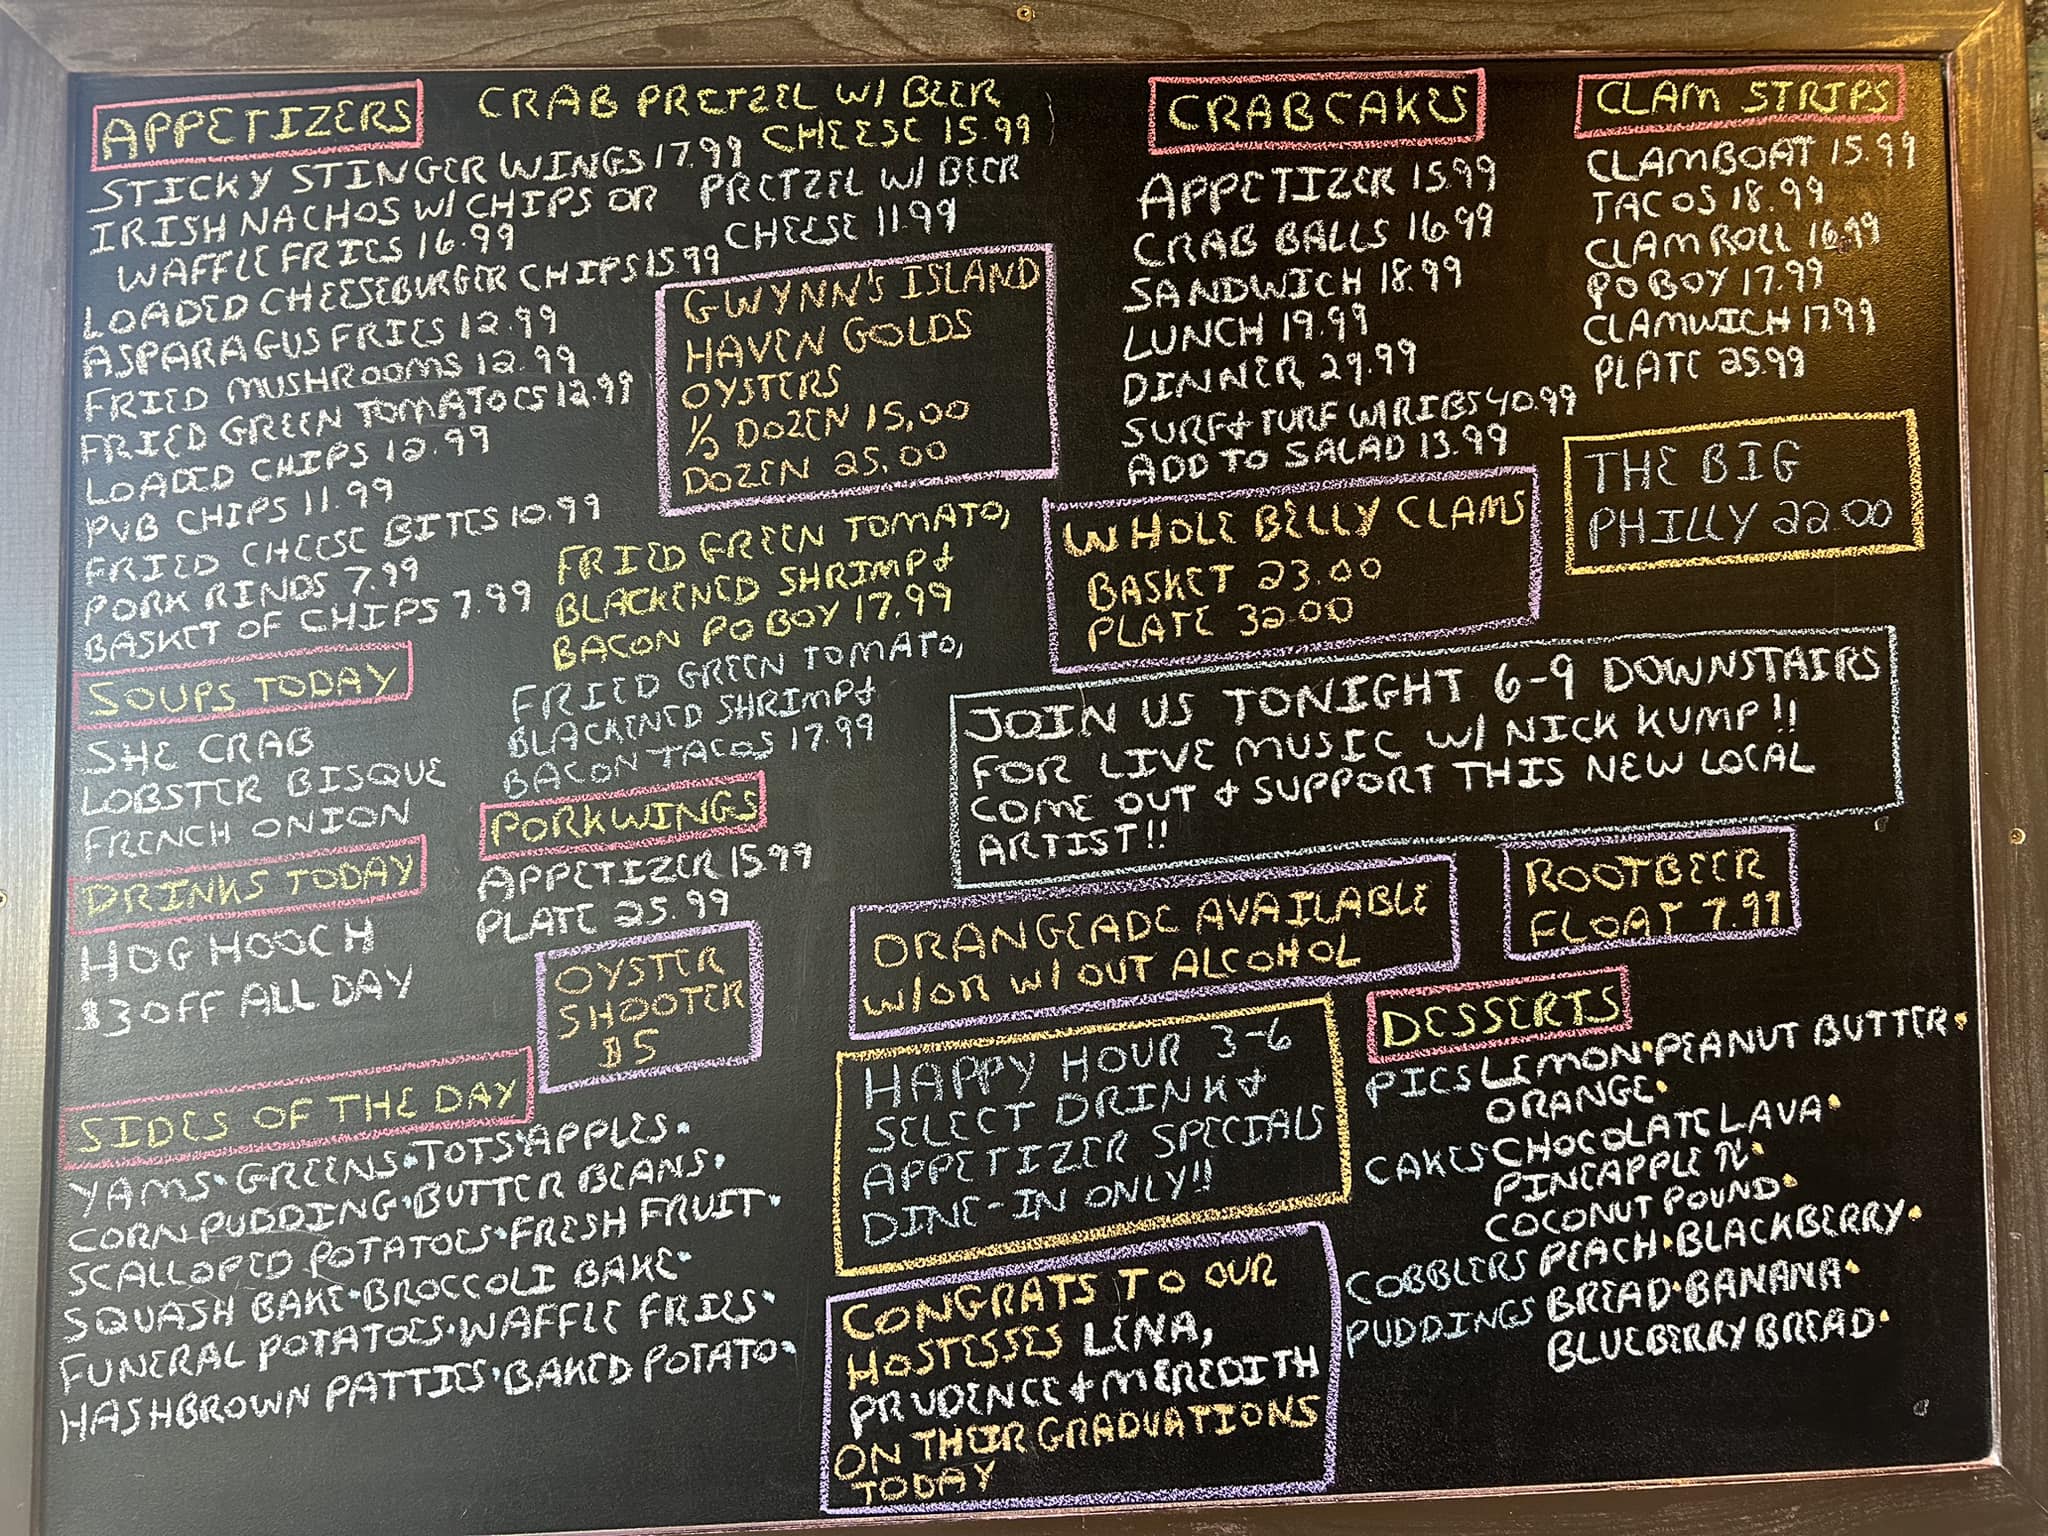 APPETIZERS
CRAB PRETZEL W/ BEER
CHEESE 15.99
STICKY STINGER WINGS 17.99
IRISH NACHOS W/ CHIPS OR
WAFFLE FRIES 16.99
PRETZEL W/ BEER
CHEESE 11.99
LOADED CHEESEBURGER CHIPS 15.99
ASPARAGUS FRIES 12.99
FRIED MUSHROOMS 12.99
FRIED GREEN TOMATOES 12.99
LOADED CHIPS 12.99
PUB CHIPS 11.99
FRIED CHEESE BITES 10.99
PORK RINDS 7.99
BASKET OF CHIPS 7.99
GWYNN'S ISLAND
HAVEN GOLDS
OYSTERS
1/2 DOZEN 15.00
DOZEN 25.00
FRIED GREEN TOMATO,
BLACKENED SHRIMP &
BACON PO BOY 17.99
FRIED GREEN TOMATO,
BLACKENED SHRIMP &
BACON TACOS 17.99
SOUPS TODAY
SHE CRAB
LOBSTER BISQUE
FRENCH ONION
DRINKS TODAY
HOG HOOCH
$3 OFF ALL DAY
PORKWINGS
APPETIZER 15.99
PLATE 25.99
OYSTER
SHOOTER
$5
SIDES OF THE DAY
YAMS • GREENS • TOTS • APPLES •
CORN PUDDING • BUTTER BEANS •
SCALLOPED POTATOES • FRESH FRUIT •
SQUASH BAKE • BROCCOLI BAKE •
FUNERAL POTATOES • WAFFLE FRIES •
HASHBROWN PATTIES • BAKED POTATO •
CRABCAKES
APPETIZER 15.99
CRAB BALLS 16.99
SANDWICH 18.99
LUNCH 19.99
DINNER 29.99
SURF & TURF W/ RIBS 40.99
ADD TO SALAD 13.99
CLAM STRIPS
CLAMBOAT 15.99
TACOS 18.99
CLAM ROLL 16.99
PO BOY 17.99
CLAMWICH 17.99
PLATE 25.99
WHOLE BELLY CLAMS
BASKET 23.00
PLATE 32.00
THE BIG
PHILLY 22.00
JOIN US TONIGHT 6-9 DOWNSTAIRS
FOR LIVE MUSIC W/ NICK KUMP!!
COME OUT & SUPPORT THIS NEW LOCAL
ARTIST!!
ORANGEADE AVAILABLE
W/ OR W/OUT ALCOHOL
ROOTBEER
FLOAT 7.99
HAPPY HOUR 3-6
SELECT DRINK &
APPETIZER SPECIALS
DINE-IN ONLY!!
CONGRATS TO OUR
HOSTESSES LENA,
PRUDENCE & MEREDITH
ON THEIR GRADUATIONS
TODAY
DESSERTS
PIES LEMON • PEANUT BUTTER •
ORANGE •
CAKES CHOCOLATE LAVA •
PINEAPPLE π •
COCONUT POUND •
COBBLERS PEACH • BLACKBERRY •
PUDDINGS BREAD • BANANA •
BLUEBERRY BREAD •